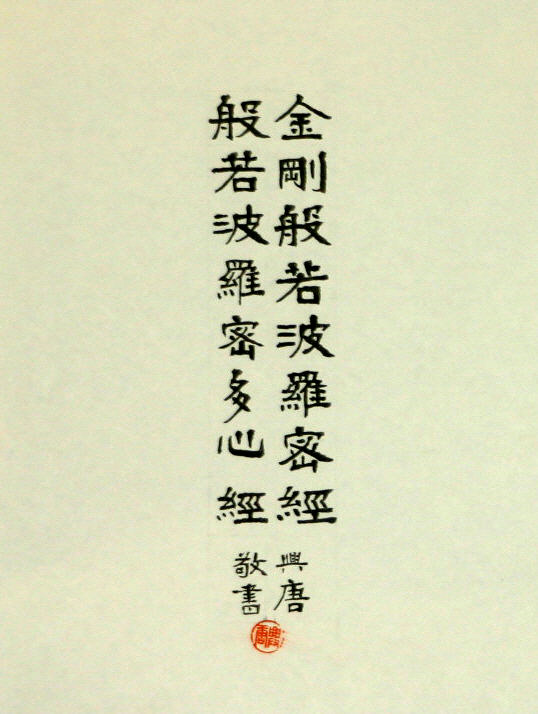 金剛般若波羅密經
般若波羅密多心經
興唐
敬書